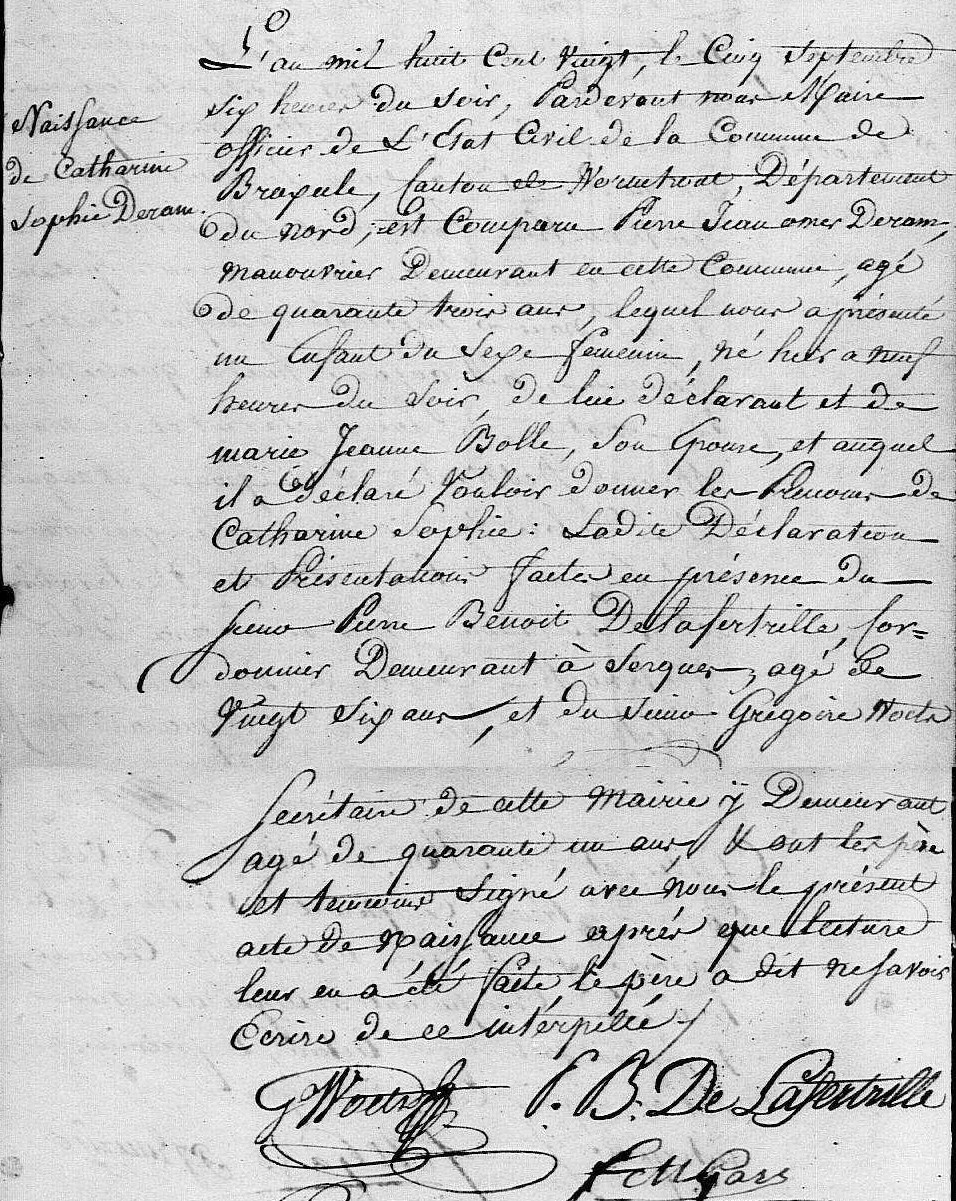 Naissance
de Catharine
Sophie Deram.
L'an mil huit Cent vingt, le Cinq Septembre
six heures du soir, Pardevant nous Maire
officier de L'Etat Civil de la Commune de
Broxeele, Canton de Wormhout, Département
du Nord, est Comparu Pierre Jean omer Deram,
manouvrier Demeurant en cette Commune, agé
de quarante trois ans, lequel nous a présenté
un Enfant du Sexe femenin, né hier a neuf
heures du Soir, de lui déclarant et de
marie Jeanne Bolle, Son Epouse, et auquel
il a déclaré Vouloir donner les Prenoms de
Catharine Sophie: Ladite Déclaration
et Présentations faites en présence du
sieur Pierre Benoit Delafertrille, Cor=
donnier Demeurant à Serques, agé de
Vingt Six ans, et du sieur Grégoire Woets
Secrétaire de cette Mairie y Demeurant
agé de quarante un ans & ont les père
et temoins Signé avec nous le présent
acte de Naissance après que lecture
leur en a été faite, le père a dit ne savoir
Ecrire de ce intérpellé
G Woets P. B. De Lafertrille